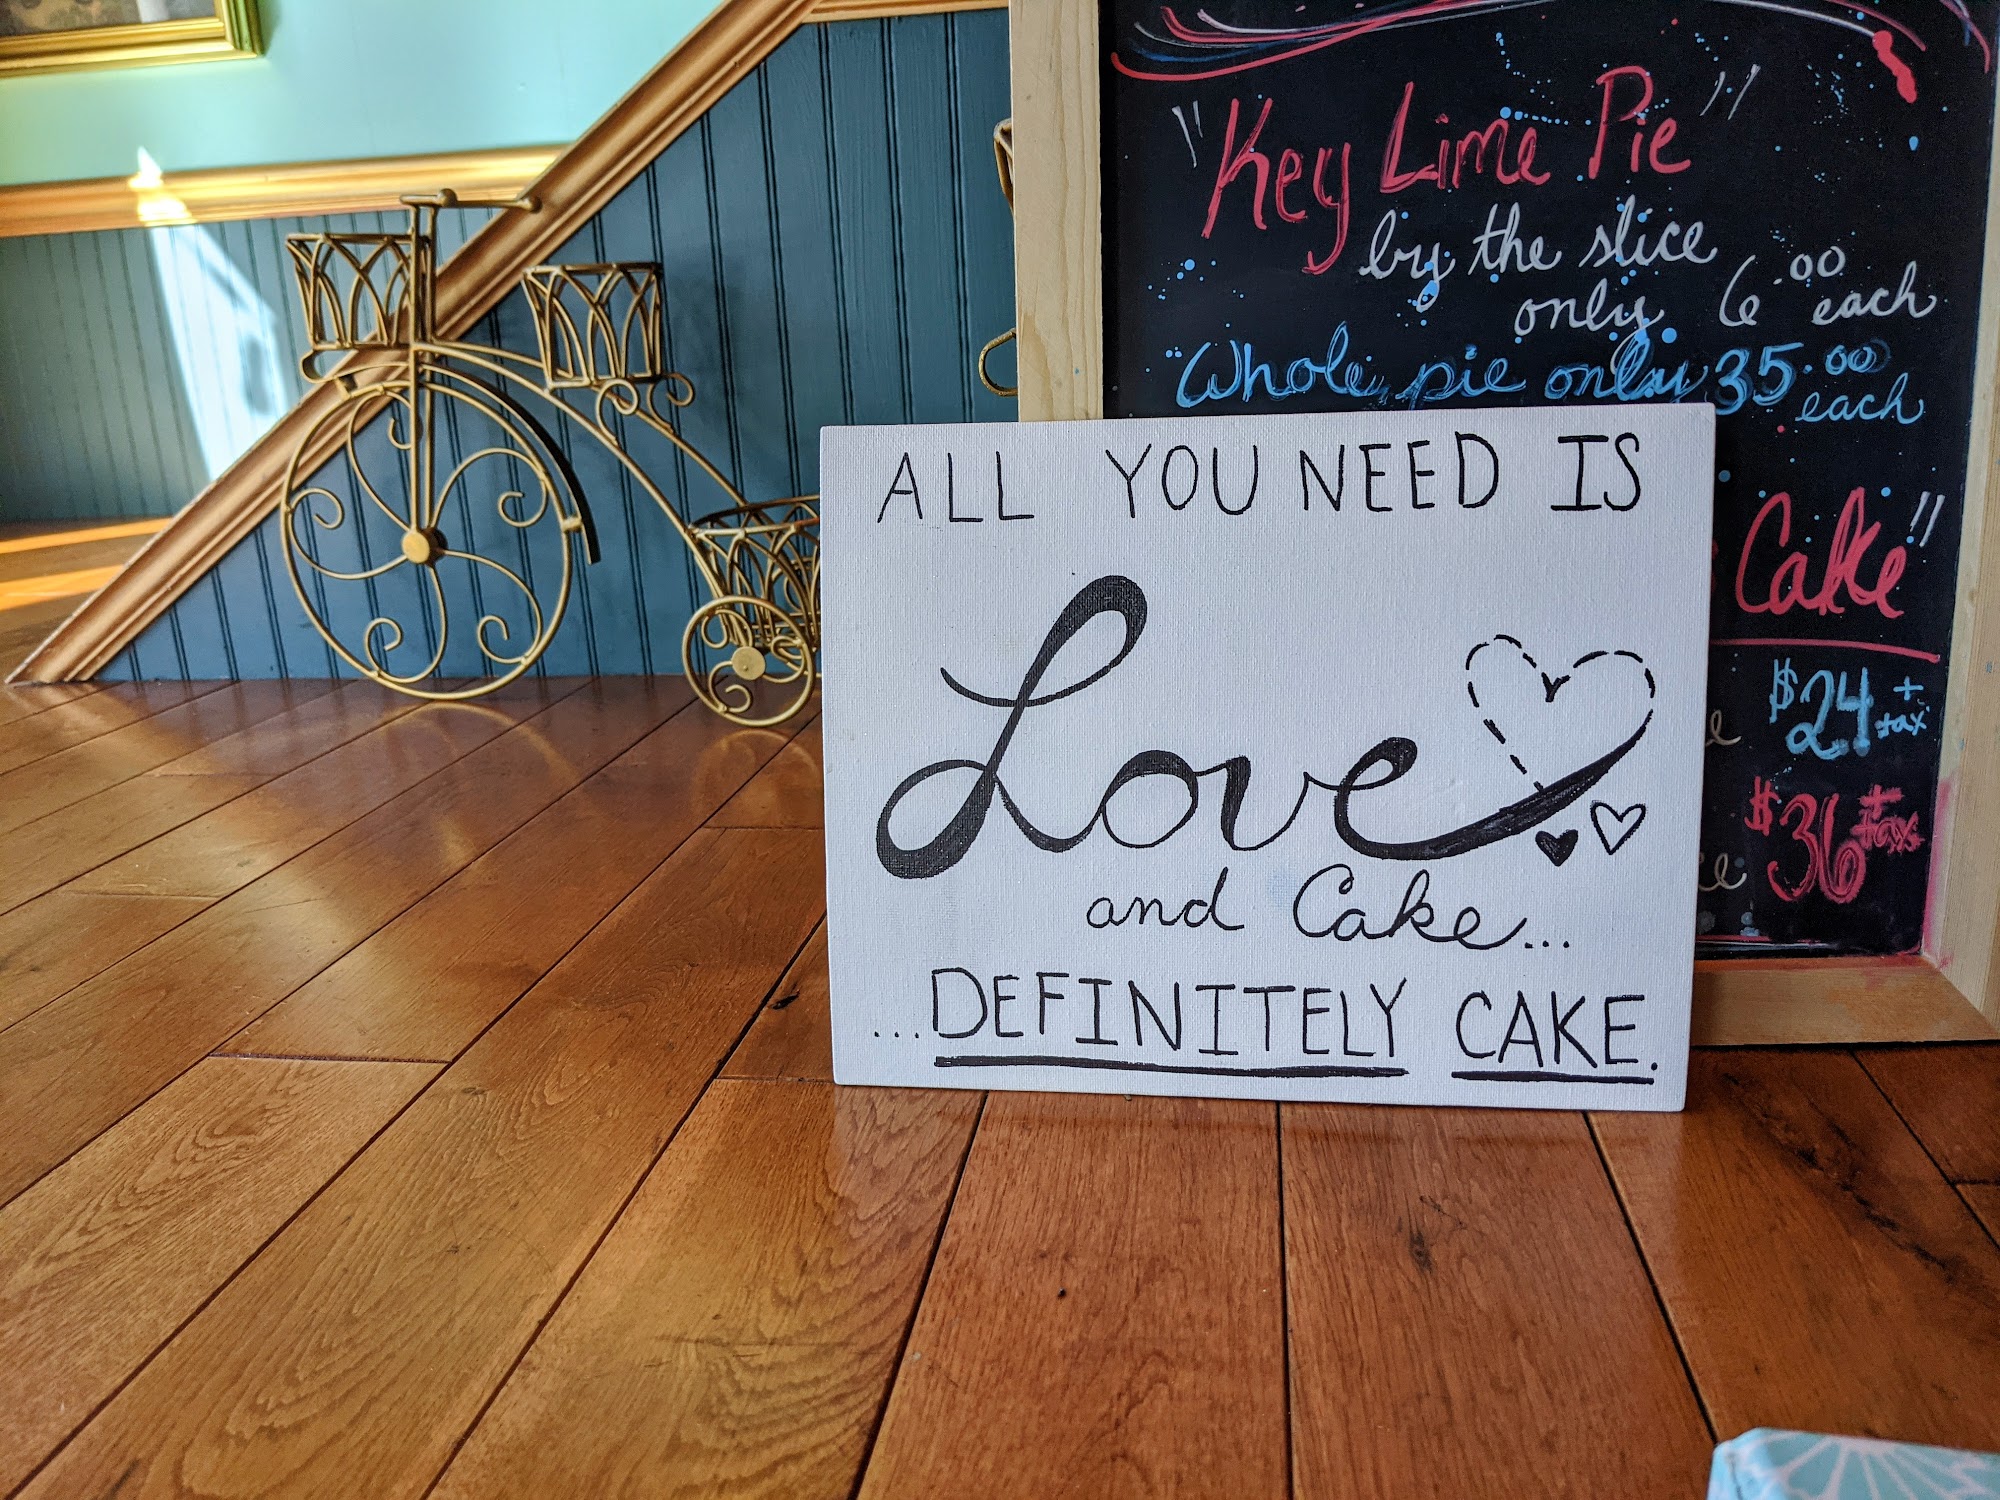 "Key Lime Pie"
by the slice
only 6.00 each
Whole pie only 35.00 each
Cake"
$24 + tax
$36 + tax
ALL YOU NEED IS
Love
and Cake...
...DEFINITELY CAKE.